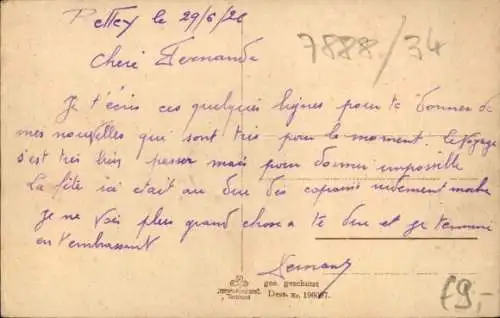 le 29/6/26
7888/34
Cheri Fernande
Je t'écris ces quelques lignes pour te donner de
mes nouvelles qui sont très pour le moment. le voyage
s'est très bien passer mais pour dormir impossible
La fête ici était au dire des copains rudement moche
Je ne vois plus grand chose a te dire et je termine
en t'embrassant
Fernand
ges. geschützt
Dess. Nr.
f9,-